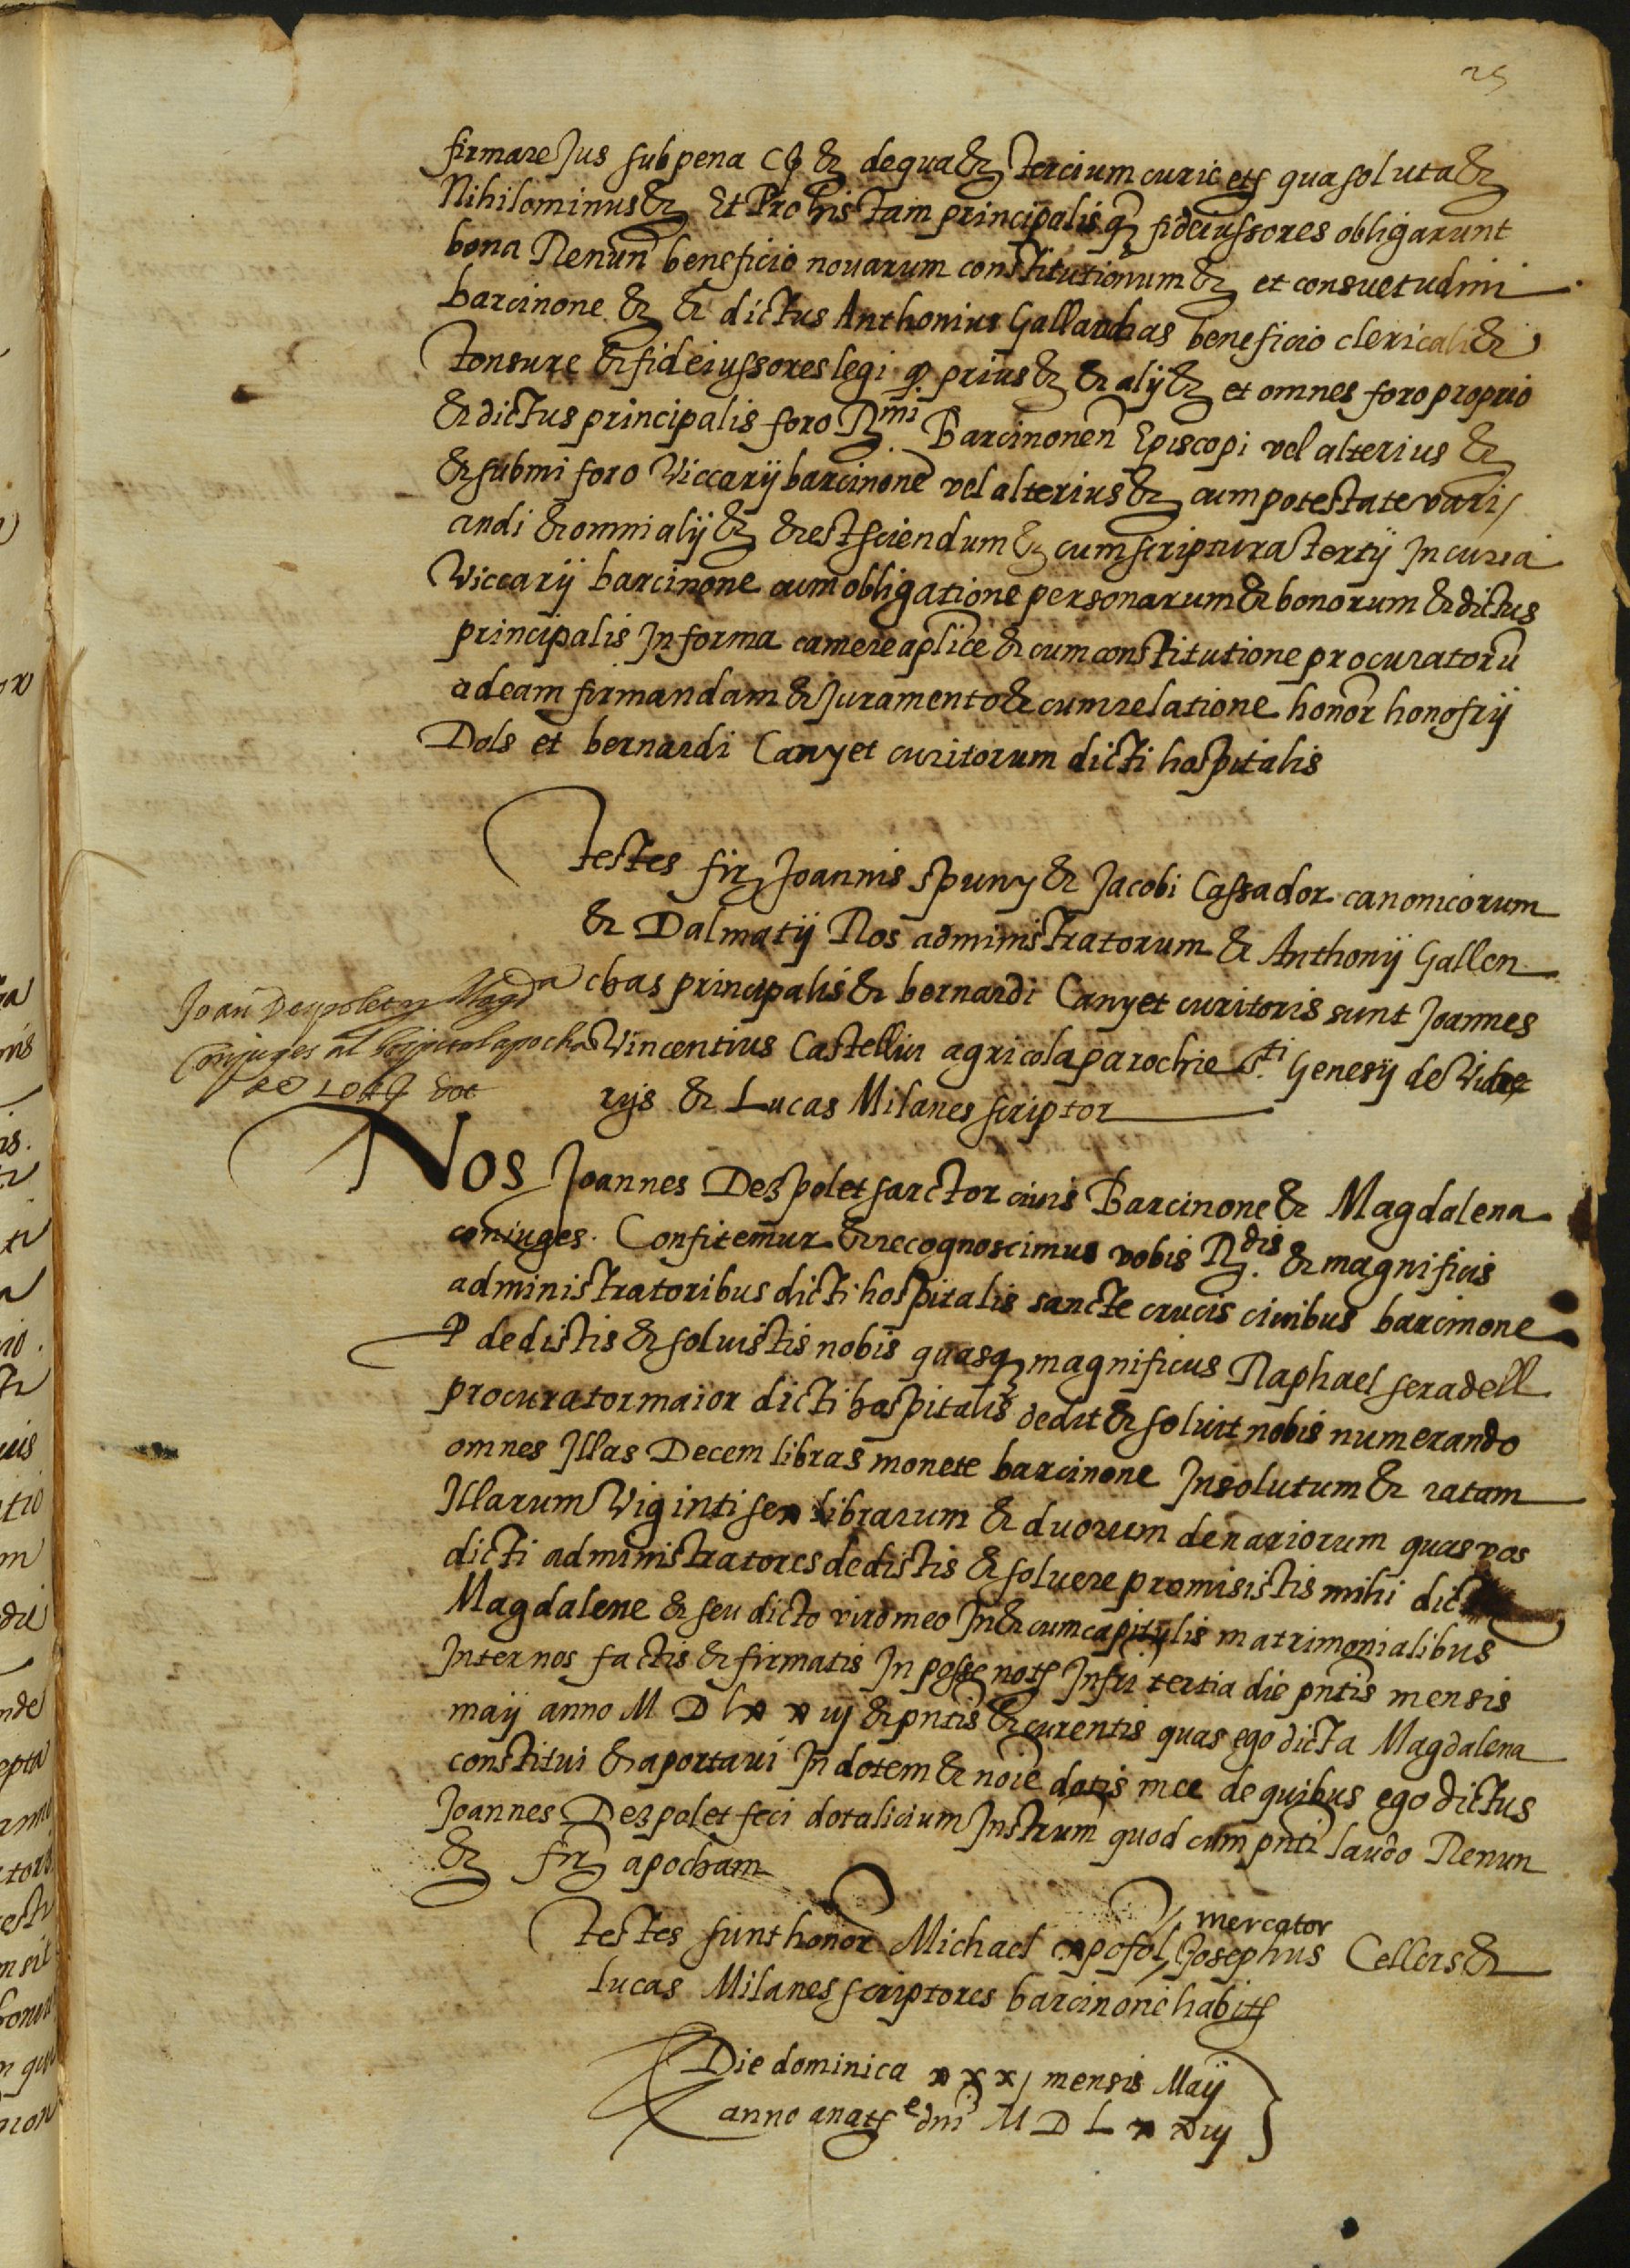 25
firmare Jus sub pena &c de qua &c tercium curie et qua soluta &c
Nihilominus &c Et Pro his tam principalis q fideiussores obligarunt
bona Renun beneficio novarum constitutionum &c et consuetudini
barcinone &c & dictus Anthonius Gallanchas beneficio clericali &
Tonsure & fideiussores legi q prius &c & alij &c et omnes foro proprio
& dictus principalis foro Rmi Barcinonen Episcopi vel alterius &c
& submi foro Viccarij barcinone vel alterius &c cum potestate vari
andi & omni alij &c & est sciendum &c cum scriptura tertij In curia
Viccarij barcinone cum obligatione personarum & bonorum & dictus
principalis In forma camere aplice & cum constitutione procuratorū
ad eam firmandam & Juramento & cum relatione honor honofrij
Dols et bernardi Canyet curitorum dicti hospitalis
Testes fir Joannis spuny & Jacobi Cassador canonicorum
& Dalmatij Ros administratorum & Anthonij Gallen
chas principalis & bernardi Canyet curitoris sunt Joannes
Vincentius Castellvir agricola parochie Sti Genesij de Vidre
rijs & Lucas Milanes scriptor
Joan Dezpolet y Magda
Conjuges al hospital apocha
de 10 ll
Nos Joannes Dezpolet sarctor civis Barcinone & Magdalena
coniuges. Confitemur & recognoscimus vobis Rdis & magnificis
administratoribus dicti hospitalis sancte crucis civibus barcinone
P dedistis & solvistis nobis quasq magnificus Raphael seradell
procurator maior dicti hospitalis dedit & solvit nobis numerando
omnes Illas Decem libras monete barcinone In solutum & ratam
Illarum Viginti sex librarum & duorum denariorum quas vos
dicti administratores dedistis & solvere promisistis mihi dicte
Magdalene & seu dicto viro meo In & cum capitulis matrimonialibus
Inter nos factis & firmatis In posse not Infri tertia die pntis mensis
maij anno M D lx x iij & pntis & curentis quas ego dicta Magdalena
constitui & aportavi In dotem & noie dotis mee de quibus ego dictus
Joannes Dezpolet feci dotalicium Instrum quod cum pnti laudo Renun
&c fir apocham
Testes sunt honor Michael expofol mercator Josephus Cellers &
Lucas Milanes scriptores barcinone habit
Die dominica x x x j mensis Maij
anno a nat e dni M D L x x iij